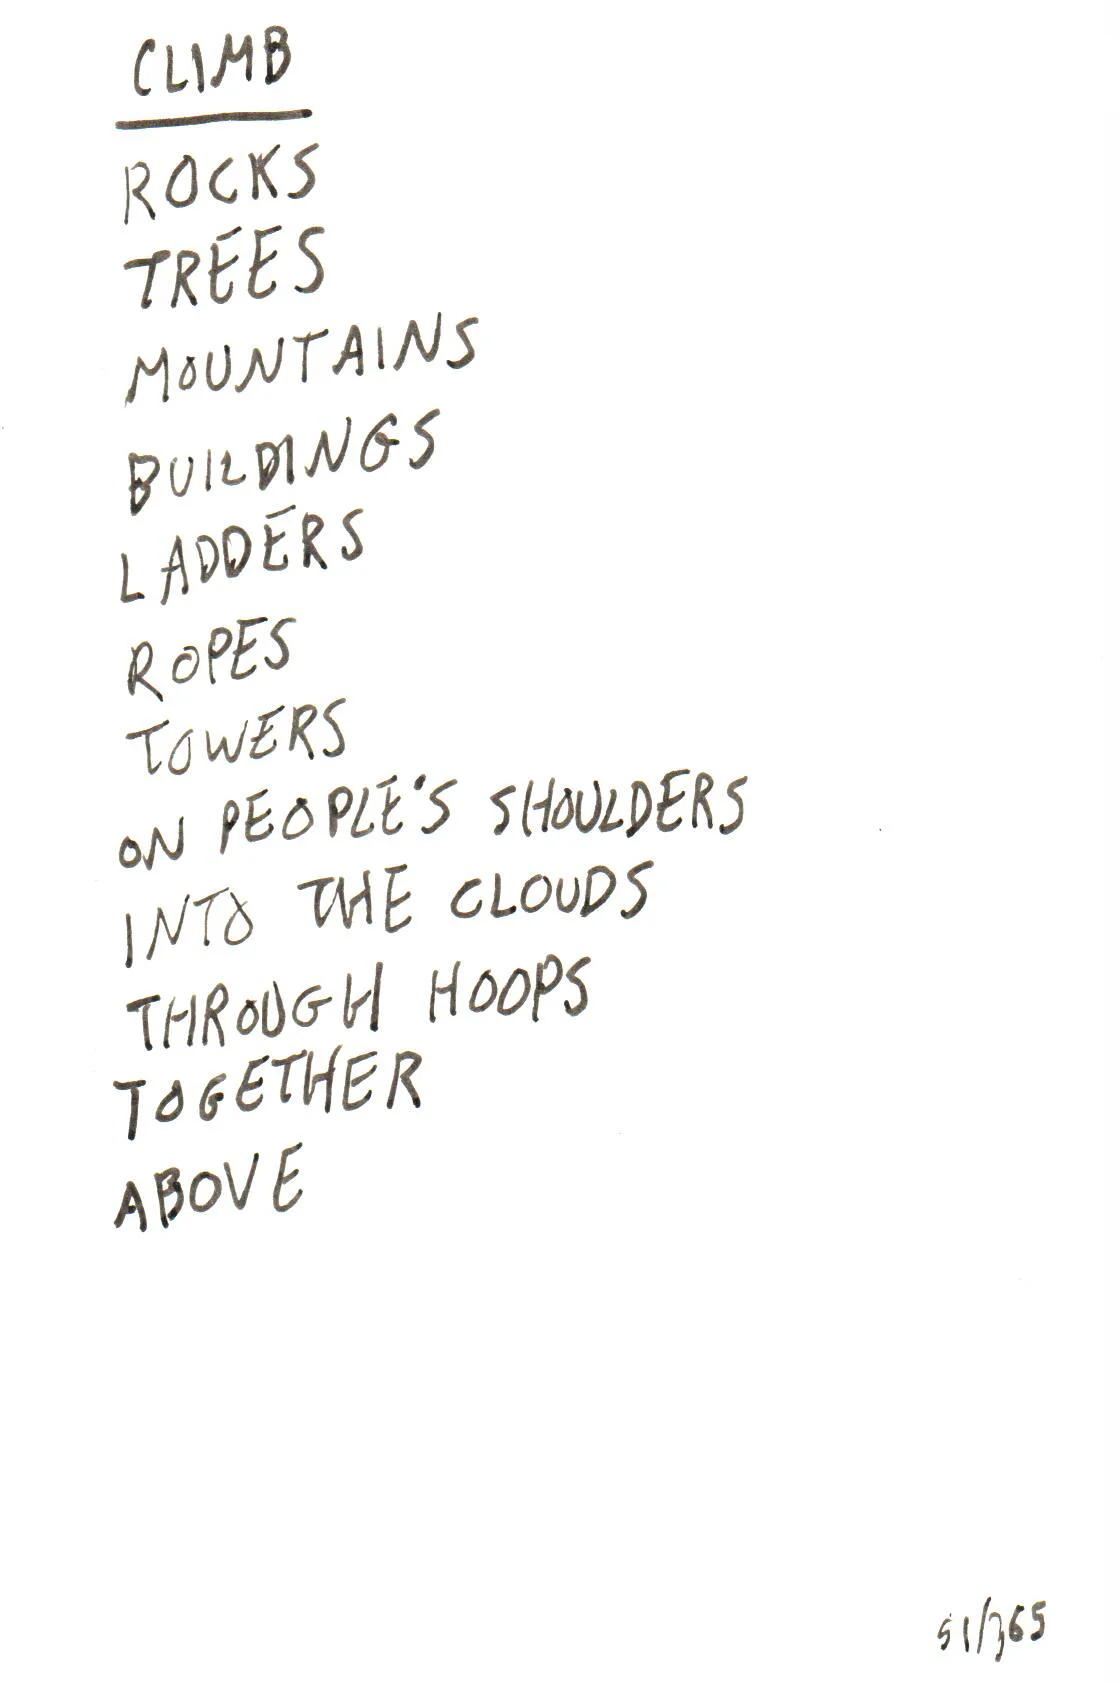 CLIMB
ROCKS
TREES
MOUNTAINS
BUILDINGS
LADDERS
ROPES
TOWERS
ON PEOPLE'S SHOULDERS
INTO THE CLOUDS
THROUGH HOOPS
TOGETHER
ABOVE
51/365